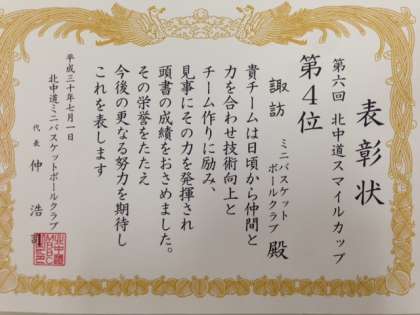 表彰状
第六回 北中道スマイルカップ
第4位
諏訪 ミニバスケット
ボールクラブ 殿
貴チームは日頃から仲間と
力を合わせ技術向上と
チーム作りに励み、
見事にその力を発揮され
頭書の成績をおさめました。
その栄誉をたたえ
今後の更なる努力を期待し
これを表します
平成三十年七月一日
北中道ミニバスケットボールクラブ
代表 仲 浩